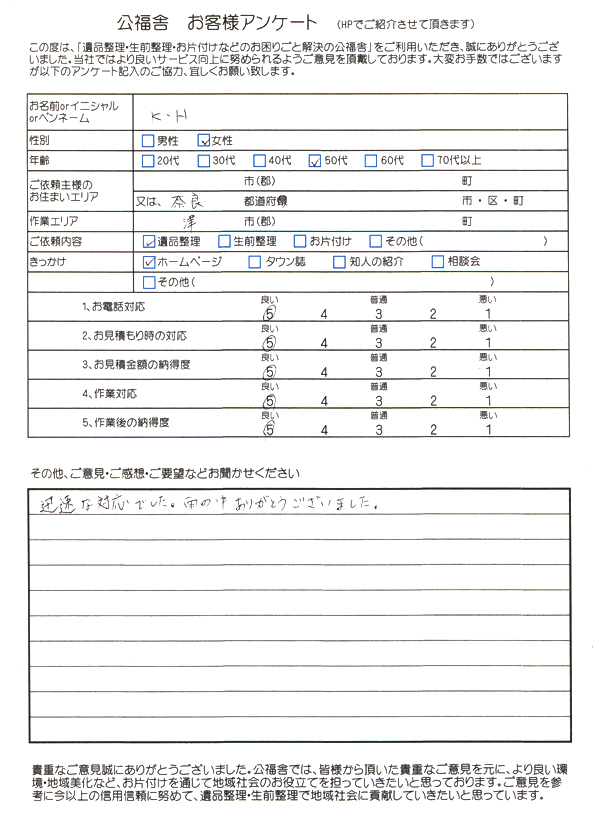 公福舎　お客様アンケート　（HPでご紹介させて頂きます）
この度は、「遺品整理・生前整理・お片付けなどのお困りごと解決の公福舎」をご利用いただき、誠にありがとうござ
いました。当社ではより良いサービス向上に努められるようご意見を頂戴しております。大変お手数ではございます
が以下のアンケート記入のご協力、宜しくお願い致します。
お名前orイニシャル
orペンネーム
K・H
性別　□男性　☑女性
年齢　□20代　□30代　□40代　☑50代　□60代　□70代以上
ご依頼主様の
お住まいエリア
市（郡）　町
又は、奈良　都道府県　市・区・町
作業エリア　津　市（郡）　町
ご依頼内容　☑遺品整理　□生前整理　□お片付け　□その他（　）
きっかけ　☑ホームページ　□タウン誌　□知人の紹介　□相談会
□その他（　）
良い　普通　悪い
1、お電話対応　5　4　3　2　1
良い　普通　悪い
2、お見積もり時の対応　5　4　3　2　1
良い　普通　悪い
3、お見積金額の納得度　5　4　3　2　1
良い　普通　悪い
4、作業対応　5　4　3　2　1
良い　普通　悪い
5、作業後の納得度　5　4　3　2　1
その他、ご意見・ご感想・ご要望などお聞かせください
迅速な対応でした。雨の中ありがとうございました。
貴重なご意見誠にありがとうございました。公福舎では、皆様から頂いた貴重なご意見を元に、より良い環
境・地域美化など、お片付けを通じて地域社会のお役立てを担っていきたいと思っております。ご意見を参
考に今以上の信用信頼に努めて、遺品整理・生前整理で地域社会に貢献していきたいと思っています。